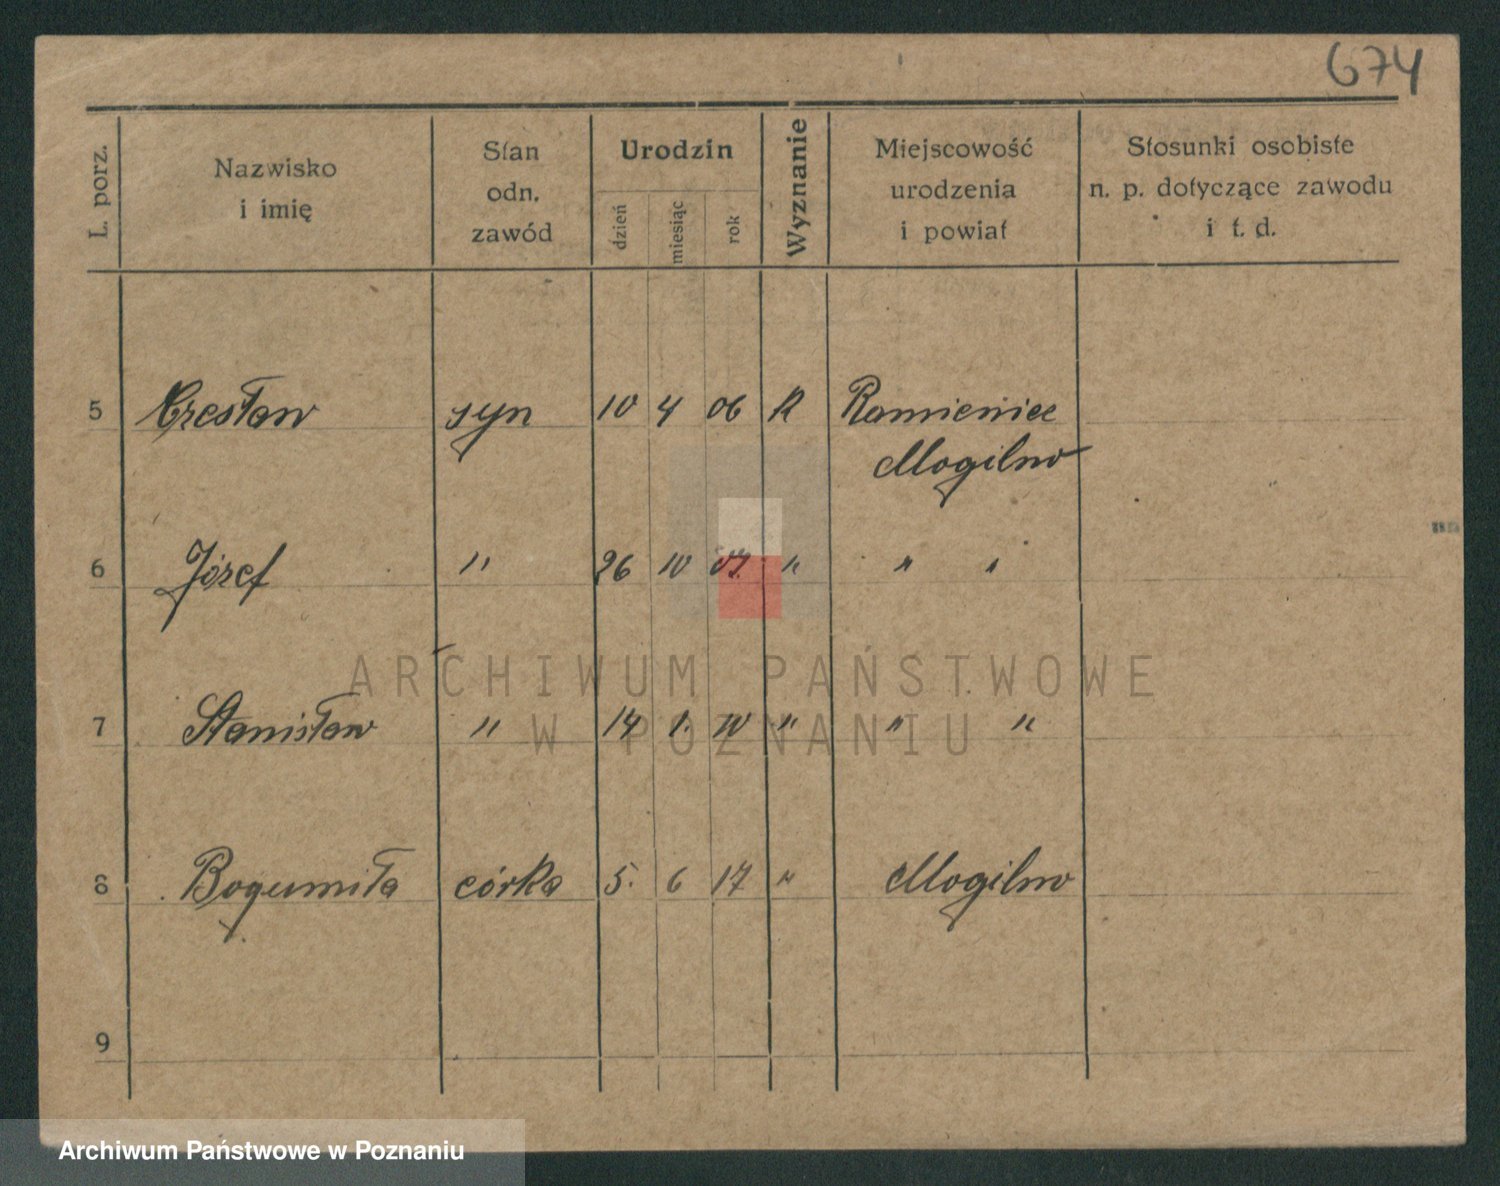 674
L. porz.
Nazwisko
i imię
Stan
odn.
zawód
Urodzin
dzień
miesiąc
rok
Wyznanie
Miejscowość
urodzenia
i powiat
Stosunki osobiste
n. p. dotyczące zawodu
i t. d.
5 Czesław syn 10 4 06 K Kamieniec
Mogilno
6 Józef " 26 10 07. " " "
7 Stanisław " 14 1. 10 " " "
8 Bogumiła córka 5. 6 17 " Mogilno
9
ARCHIWUM PAŃSTWOWE
W POZNANIU
Archiwum Państwowe w Poznaniu